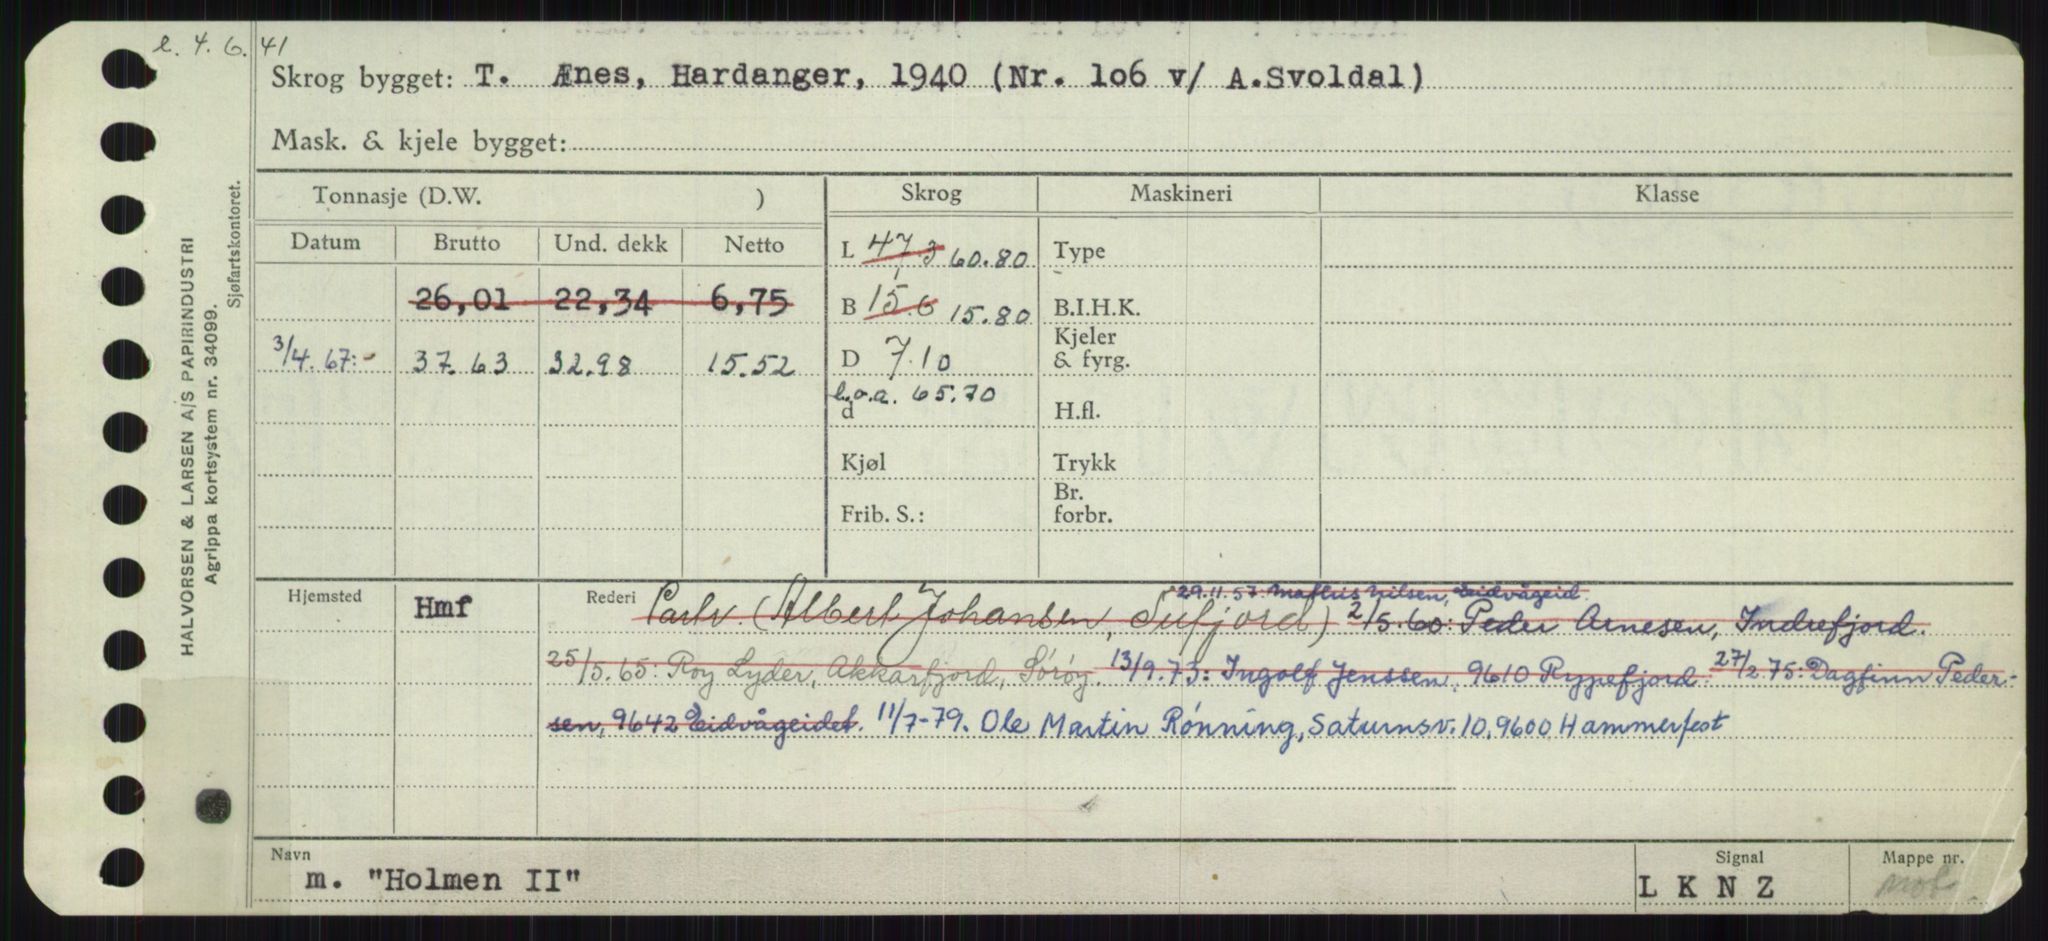 e. 4. 6. 41
Skrog bygget: T. Ænes, Hardanger, 1940 (Nr. 1o6 v/ A.Svoldal)
Mask. & kjele bygget:
Tonnasje (D.W. ) Skrog Maskineri Klasse
Datum Brutto Und. dekk Netto
L 47,3 60.80 Type
26,01 22,34 6,75 B 15,6 15.80 B.I.H.K.
3/4.67:- 37.63 32.98 15.52 D 7.10 Kjeler & fyrg.
l.o.a. 65.70
d H.fl.
Kjøl Trykk
Frib. S.: Br. forbr.
29.11.57: Nilsen, Eidvågeid.
Hjemsted Hmf Rederi Partr. (Albert Johansen, ) 2/5.60: Peder Arnesen, Indrefjord.
25/5.65: Roy Lyder, Akkarfjord, Sørøy. 13/9.73: Ingolf Jenssen, 9610 Rypefjord. 27/2.75: Dagfinn Peder-
sen, 9642 Eidvågeidet. 11/7-79. Ole Martin Rønning, Saturnsv. 10, 9600 Hammerfest
Navn Signal Mappe nr.
m. "Holmen II" L K N Z mot
HALVORSEN & LARSEN A/S PAPIRINDUSTRI
Agrippa kortsystem nr. 34099.
Sjøfartskontoret.